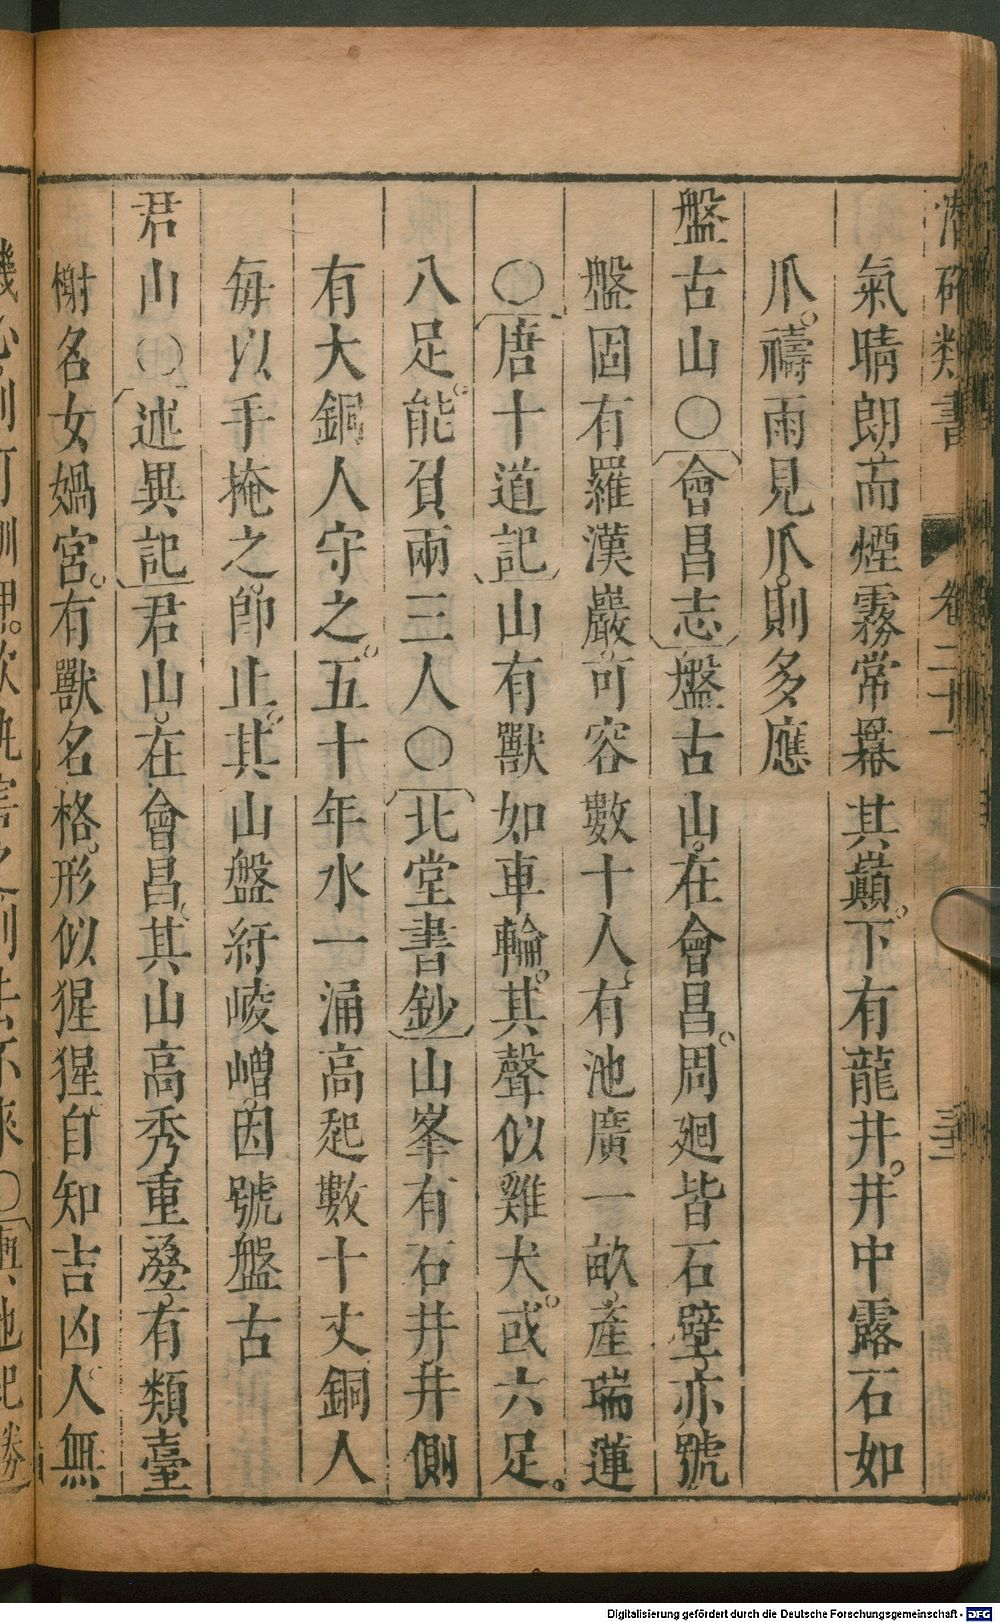 潛確類書 卷二十一 三
氣晴朗而煙霧常羃其巔。下有龍井。井中露石如
爪。禱雨見爪。則多應
盤古山○會昌志盤古山。在會昌。周廻皆石壁。亦號
盤固有羅漢巖。可容數十人。有池廣一畝。產瑞蓮
○唐十道記山有獸如車輪。其聲似雞犬。或六足。
八足。能負兩三人○北堂書鈔山峯有石井井側
有大銅人守之。五十年水一涌高起數十丈銅人
每以手掩之。卽止。其山盤紆崚嶒。因號盤古
君山○述異記君山。在會昌。其山高秀重疊。有類臺
榭名女媧宮。有獸名格。形似猩猩。自知吉凶。人無
Digitalisierung gefördert durch die Deutsche Forschungsgemeinschaft - DFG